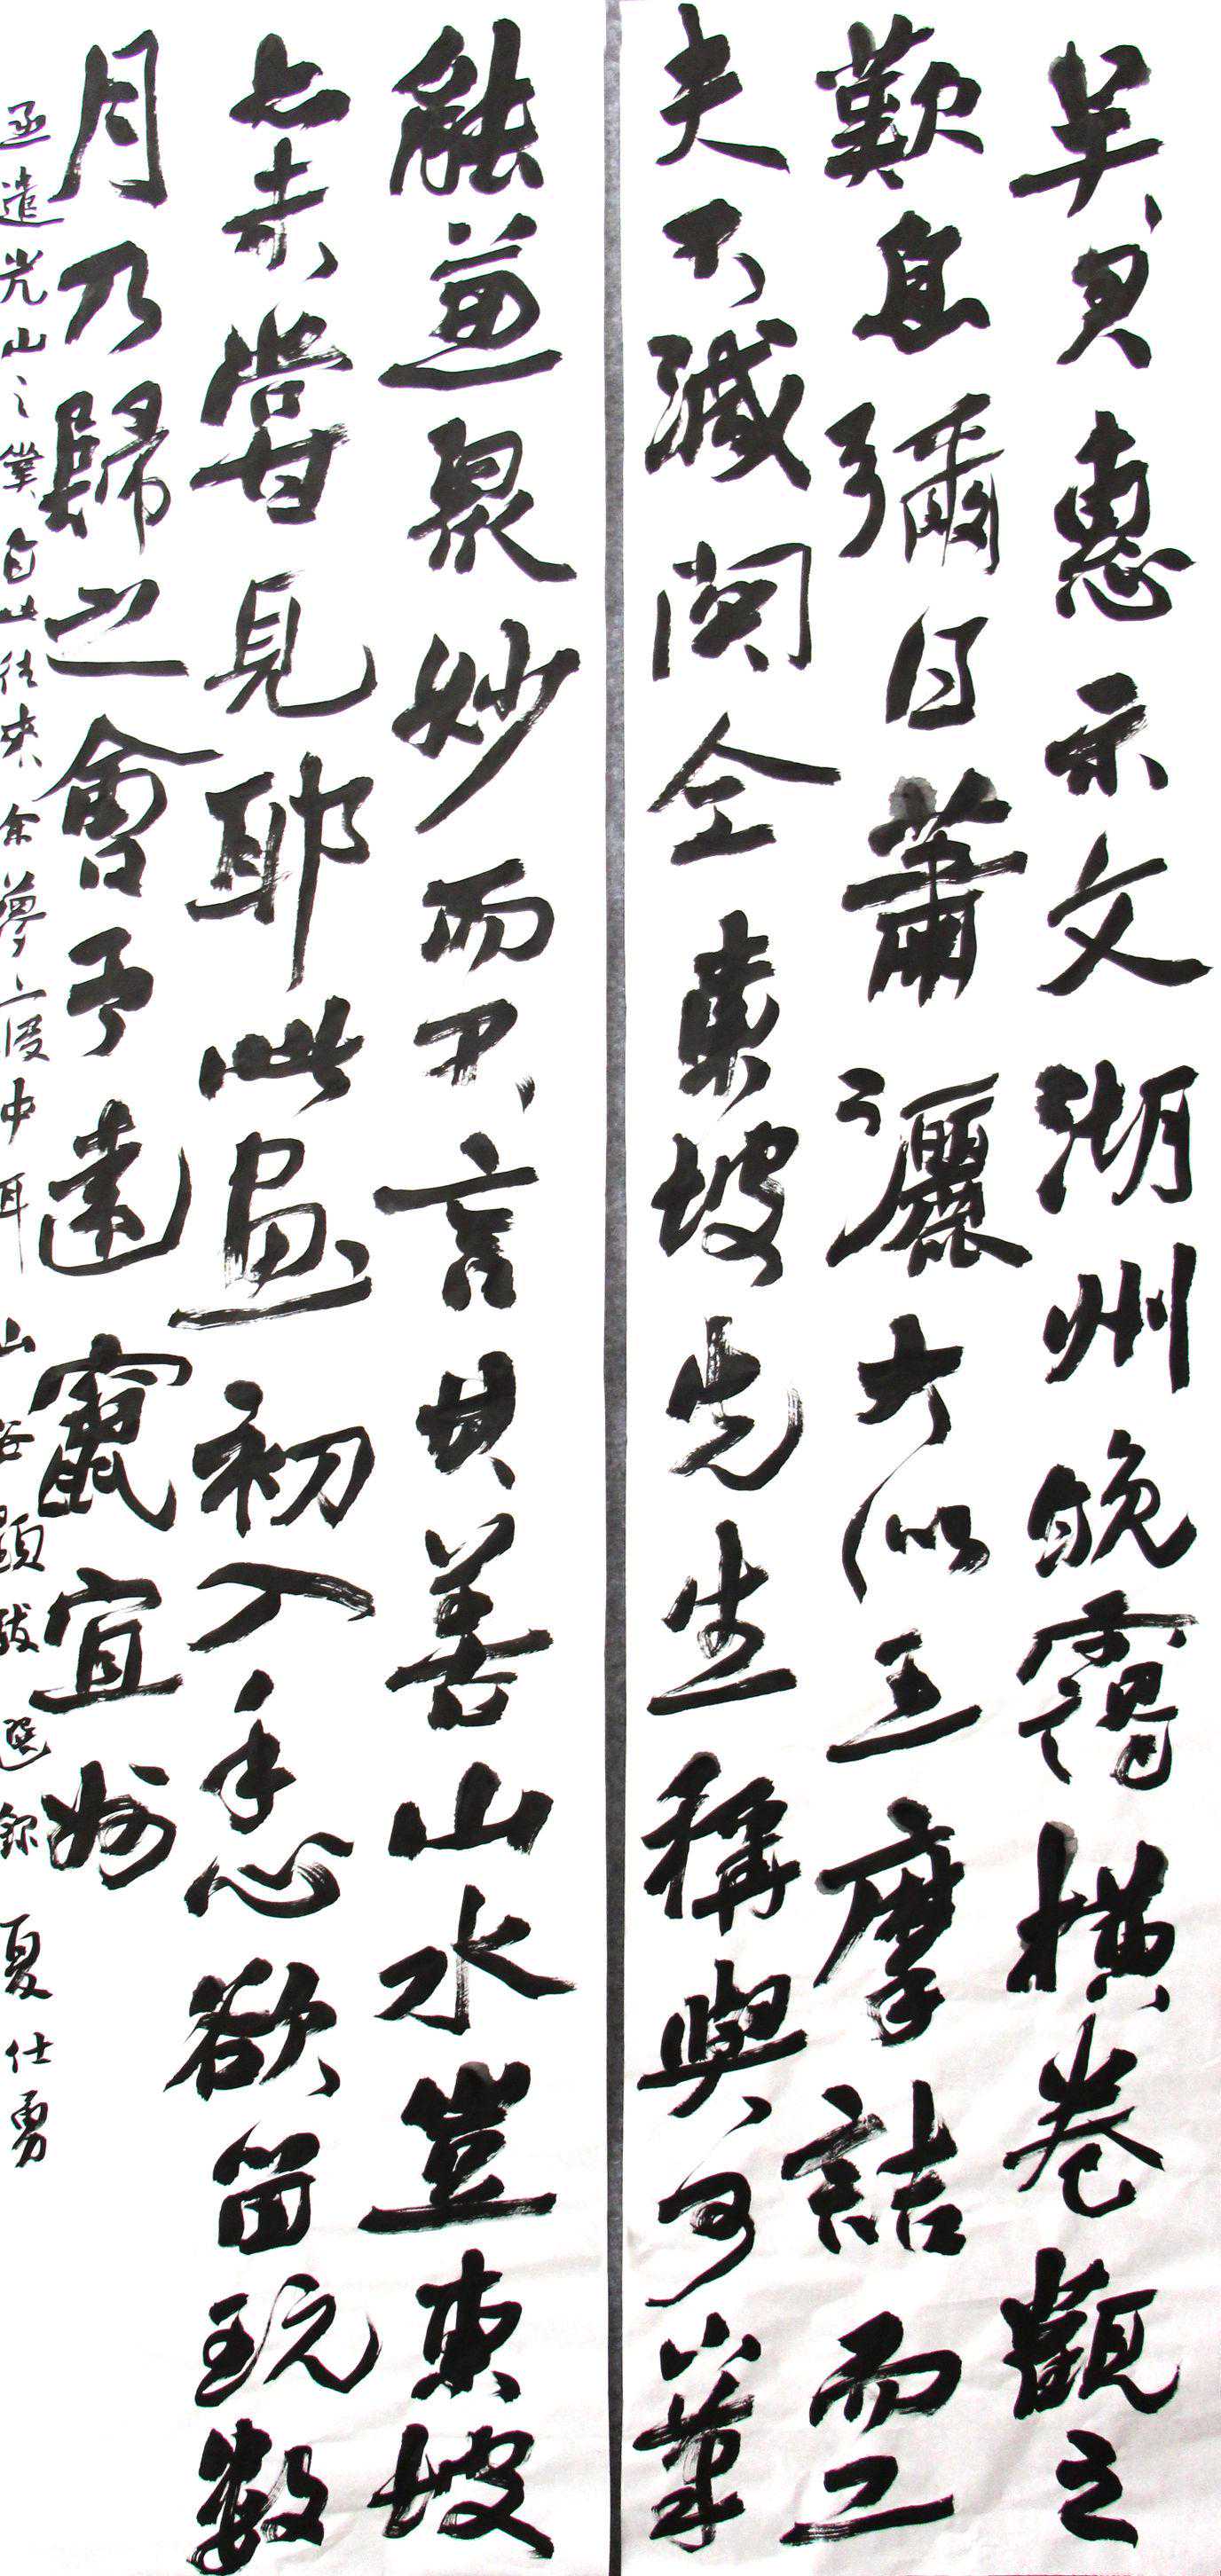 吴君惠示文湖州晚靄横卷觀之
歎息彌日蕭灑大似王摩詰而工
夫不減關仝東坡先生稱與可下筆
能兼眾妙而不言其善山水豈東坡
亦未嘗見耶此畫初入手心欲留玩數
月乃歸之會予遠竄宜州
亟遣光山之僕自此往來余夢寐中耳 山谷題跋選録 夏仕勇